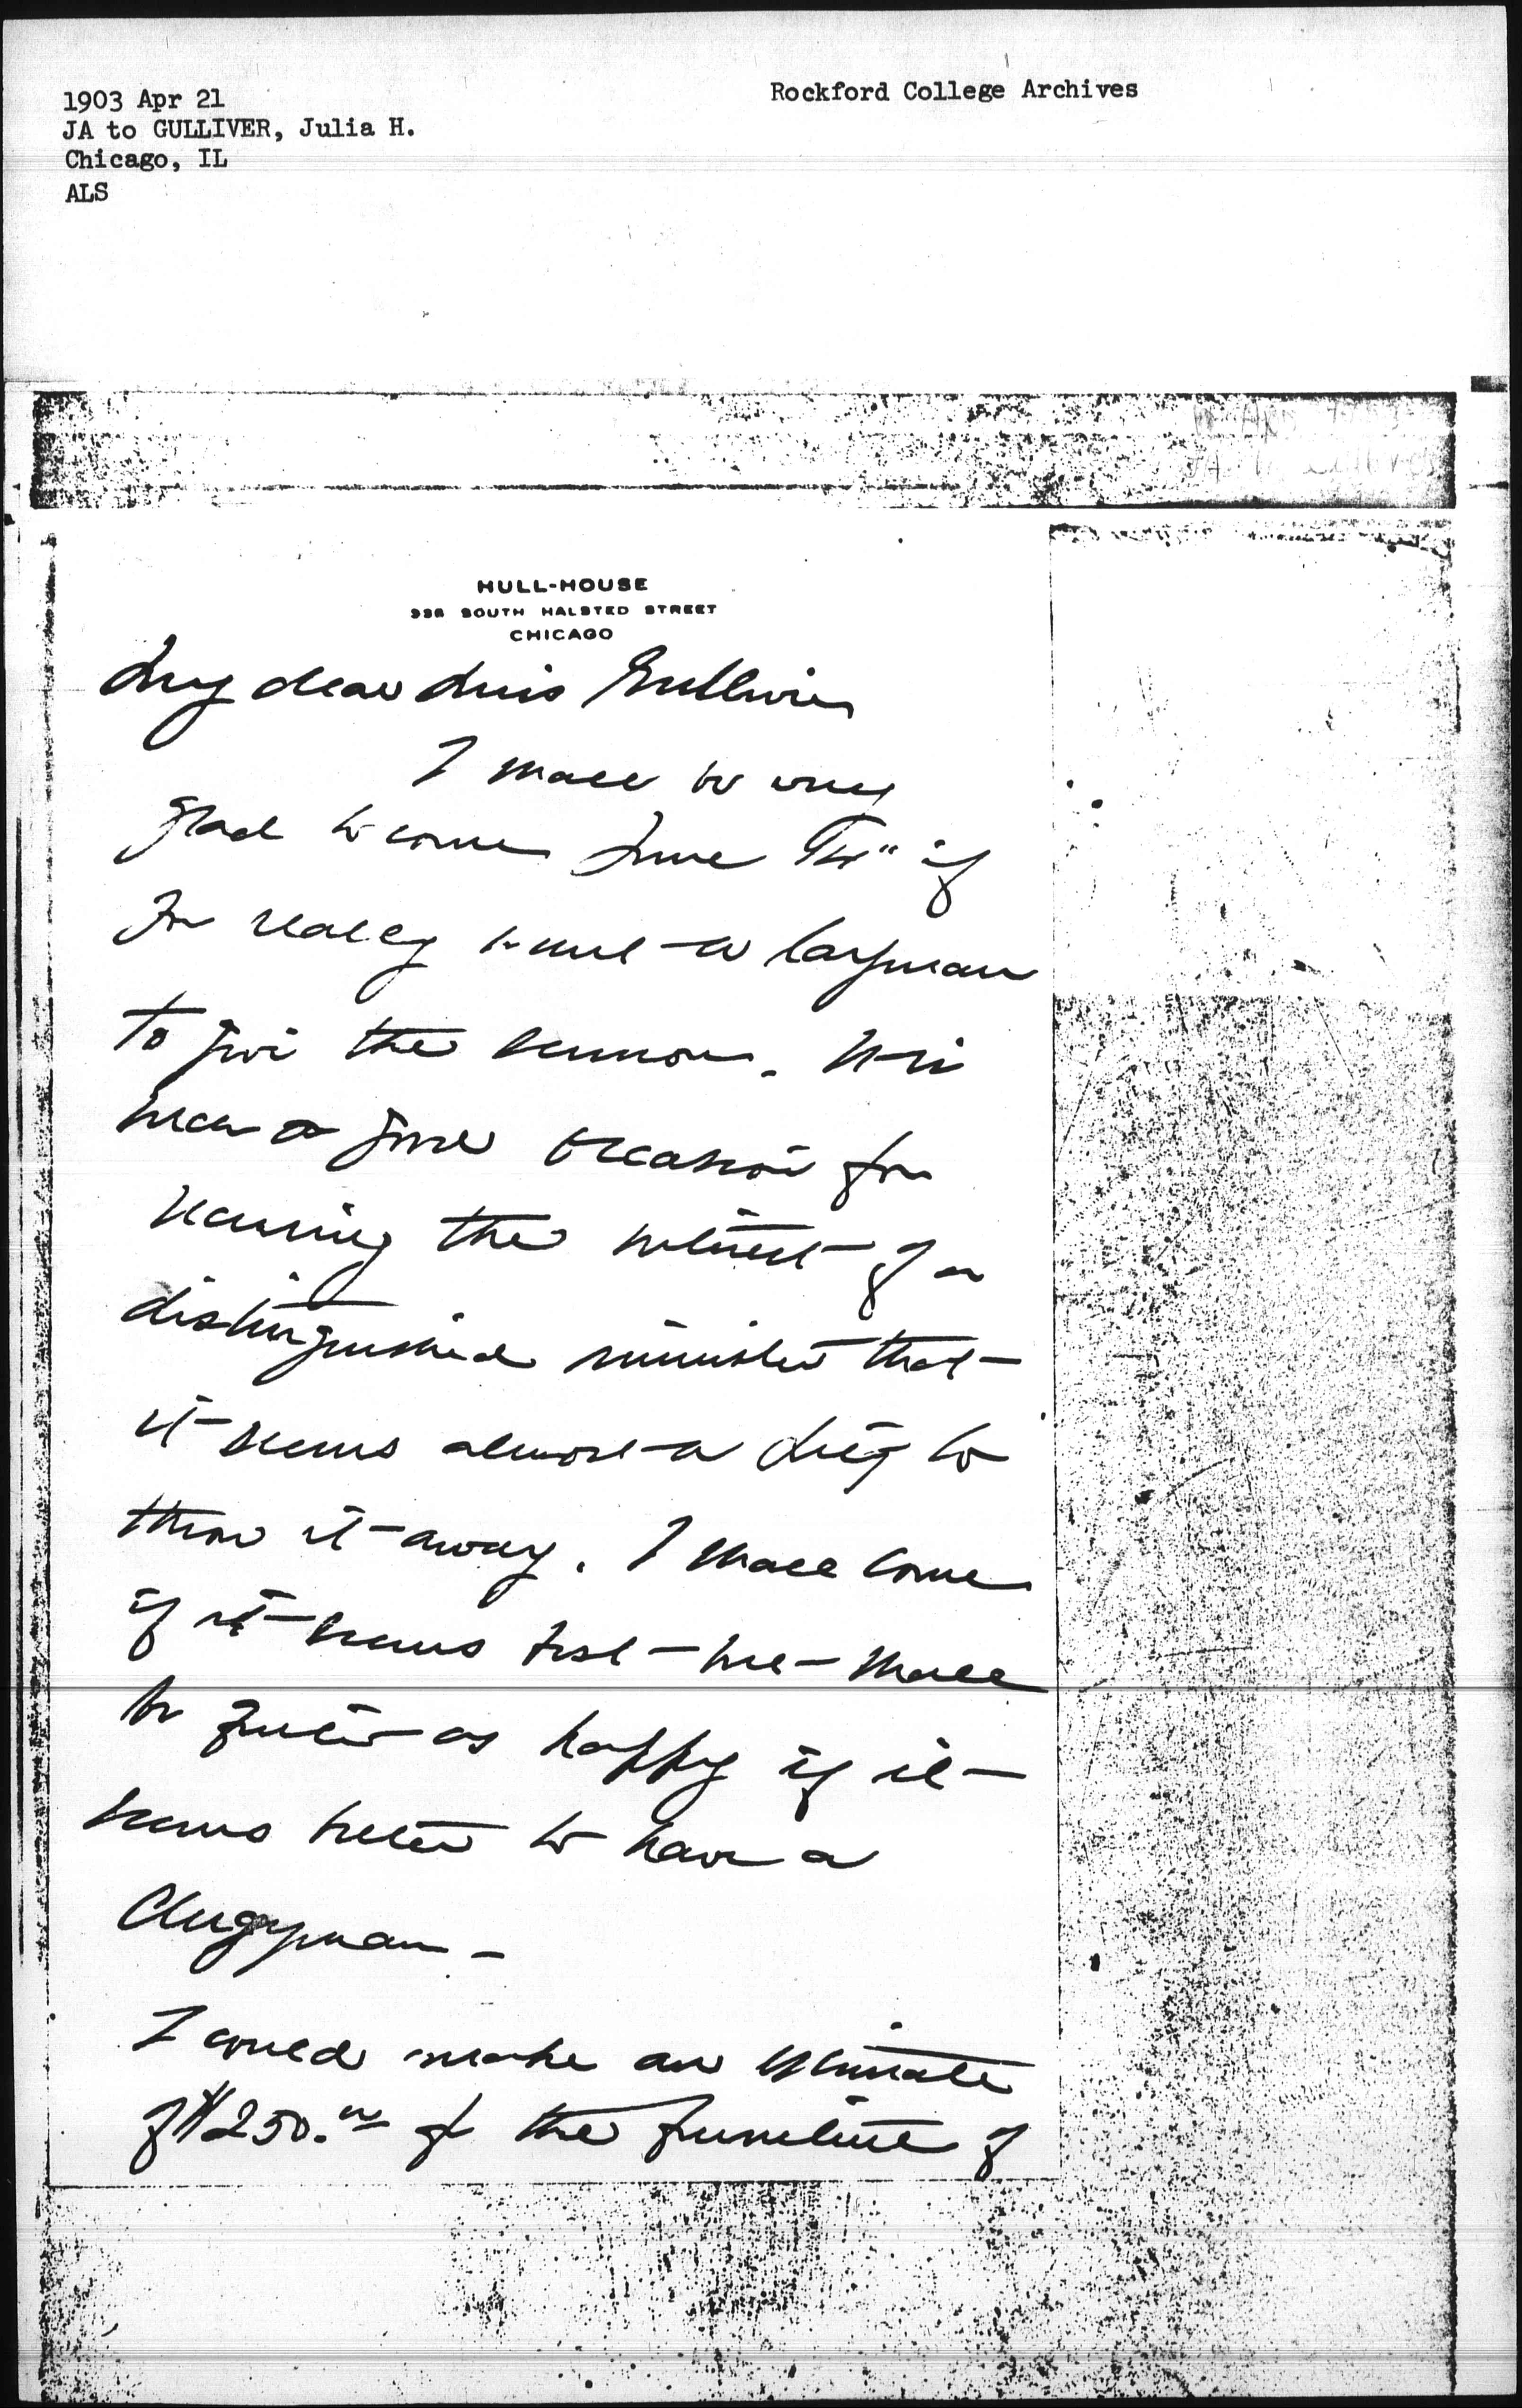 1903 Apr 21
JA to GULLIVER, Julia H.
Chicago, IL
ALS
Rockford College Archives
HULL-HOUSE
335 SOUTH HALSTED STREET
CHICAGO
My dear Miss Gulliver
I shall be very
glad to come June if
you really want a layman
to give the sermon.
such a good occasion for
securing the interest of a
distinguished minister that
it seems almost a pity to
throw it away. I shall come
if it seems best but shall
be quite as happy if it
seems better to have a
Clergyman –
I could make an estimate
of $250.00 for the furniture of